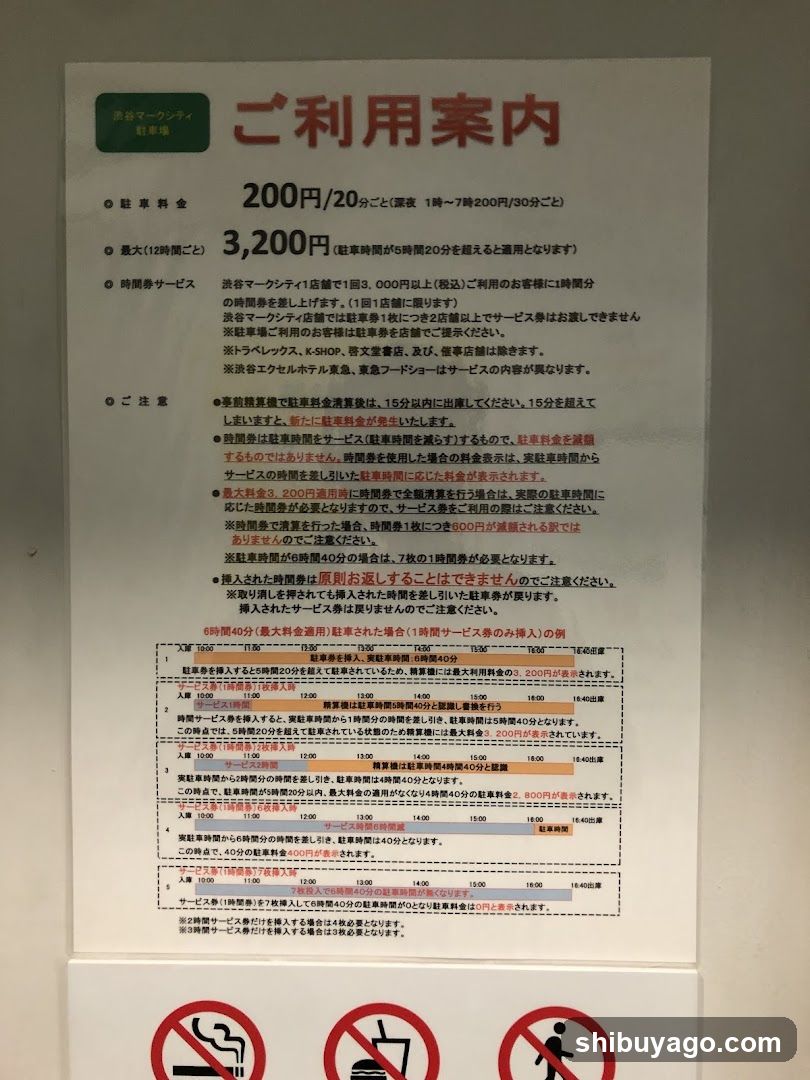 渋谷マークシティ
駐車場
ご利用案内
◎ 駐車料金 200円/20分ごと(深夜 1時～7時200円/30分ごと)
◎ 最大(12時間ごと) 3,200円(駐車時間が5時間20分を超えると適用となります)
◎ 時間券サービス 渋谷マークシティ1店舗で1回3,000円以上(税込)ご利用のお客様に1時間分
の時間券を差し上げます。(1回1店舗に限ります)
渋谷マークシティ店舗では駐車券1枚につき2店舗以上でサービス券はお渡しできません
※駐車場ご利用のお客様は駐車券を店舗でご提示ください。
※トラベレックス、K-SHOP、啓文堂書店、及び、催事店舗は除きます。
※渋谷エクセルホテル東急、東急フードショーはサービスの内容が異なります。
◎ ご注意 ●事前精算機で駐車料金清算後は、15分以内に出庫してください。15分を超えて
しまいますと、新たに駐車料金が発生いたします。
●時間券は駐車時間をサービス(駐車時間を減らす)するもので、駐車料金を減額
するものではありません。時間券を使用した場合の料金表示は、実駐車時間から
サービスの時間を差し引いた駐車時間に応じた料金が表示されます。
●最大料金3,200円適用時に時間券で全額清算を行う場合は、実際の駐車時間に
応じた時間券が必要となりますので、サービス券をご利用の際はご注意ください。
※時間券で清算を行った場合、時間券1枚につき600円が減額される訳では
ありませんのでご注意ください。
※駐車時間が6時間40分の場合は、7枚の1時間券が必要となります。
●挿入された時間券は原則お返しすることはできませんのでご注意ください。
※取り消しを押されても挿入された時間を差し引いた駐車券が戻ります。
挿入されたサービス券は戻りませんのでご注意ください。
6時間40分(最大料金適用)駐車された場合(1時間サービス券のみ挿入)の例
入庫 10:00 11:00 12:00 13:00 14:00 15:00 16:00 16:40出庫
1 駐車券を挿入、実駐車時間:6時間40分
駐車券を挿入すると5時間20分を超えて駐車されているため、精算機には最大利用料金の3,200円が表示されます。
サービス券(1時間券)1枚挿入時
入庫 10:00 11:00 12:00 13:00 14:00 15:00 16:00 16:40出庫
2 サービス1時間 精算機は駐車時間5時間40分と認識し書換を行う
時間サービス券を挿入すると、実駐車時間から1時間分の時間を差し引き、駐車時間は5時間40分となります。
この時点では、5時間20分を超えて駐車されている状態のため精算機には最大料金3,200円が表示されています。
サービス券(1時間券)2枚挿入時
入庫 10:00 11:00 12:00 13:00 14:00 15:00 16:00 16:40出庫
3 サービス2時間 精算機は駐車時間4時間40分と認識
実駐車時間から2時間分の時間を差し引き、駐車時間は4時間40分となります。
この時点で、駐車時間が5時間20分以内、最大料金の適用がなくなり4時間40分の駐車料金2,800円が表示されます。
サービス券(1時間券)6枚挿入時
入庫 10:00 11:00 12:00 13:00 14:00 15:00 16:00 16:40出庫
4 サービス時間6時間減 駐車時間
実駐車時間から6時間分の時間を差し引き、駐車時間は40分となります。
この時点で、40分の駐車料金400円が表示されます。
サービス券(1時間券)7枚挿入時
入庫 10:00 11:00 12:00 13:00 14:00 15:00 16:00 16:40出庫
5 7枚投入で6時間40分の駐車時間が無くなります。
サービス券(1時間券)を7枚挿入して6時間40分の駐車時間が0となり駐車料金は0円と表示されます。
※2時間サービス券だけを挿入する場合は4枚必要となります。
※3時間サービス券だけを挿入する場合は3枚必要となります。
shibuyago.com